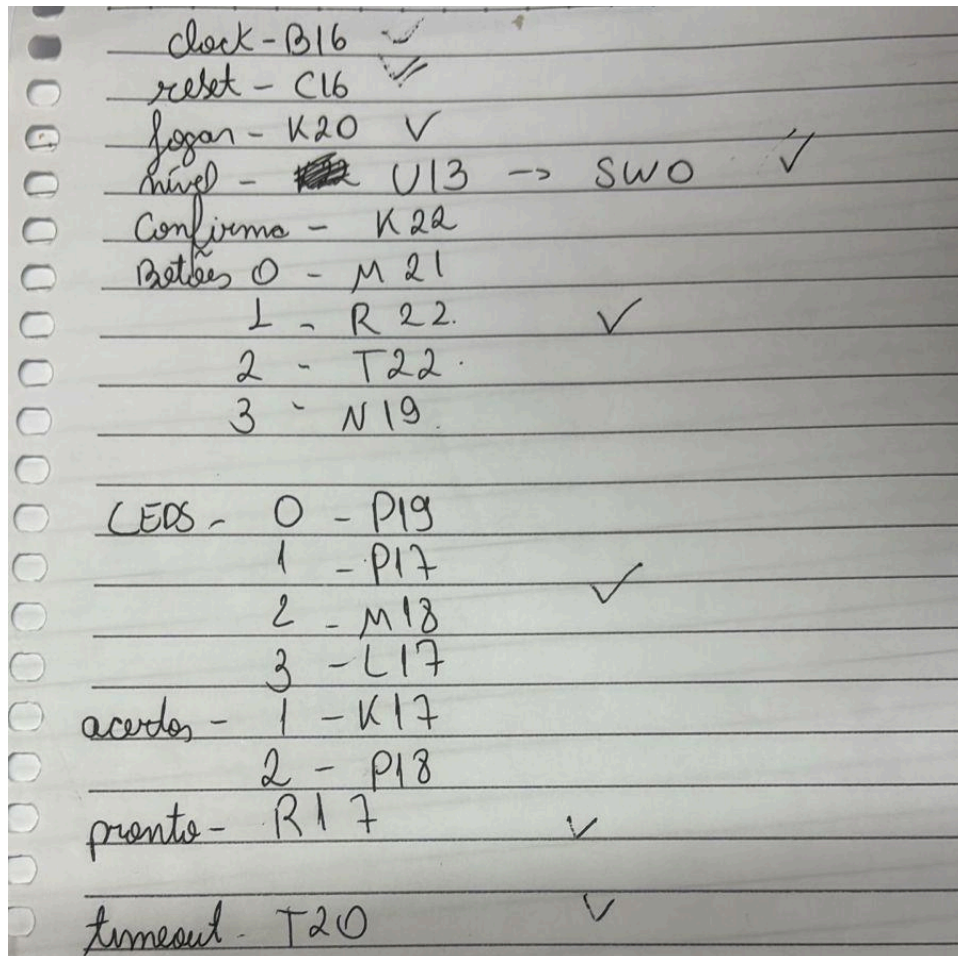 clock - B16 ✓
reset - C16 ✓
jogar - K20 ✓
nível - U13 -> SW0 ✓
Confirma - K22
Botões 0 - M21
1 - R22. ✓
2 - T22.
3 - N19.
LEDS - 0 - P19
1 - P17
2 - M18 ✓
3 - L17
acertos - 1 - K17
2 - P18
pronto - R17 ✓
timeout - T20 ✓